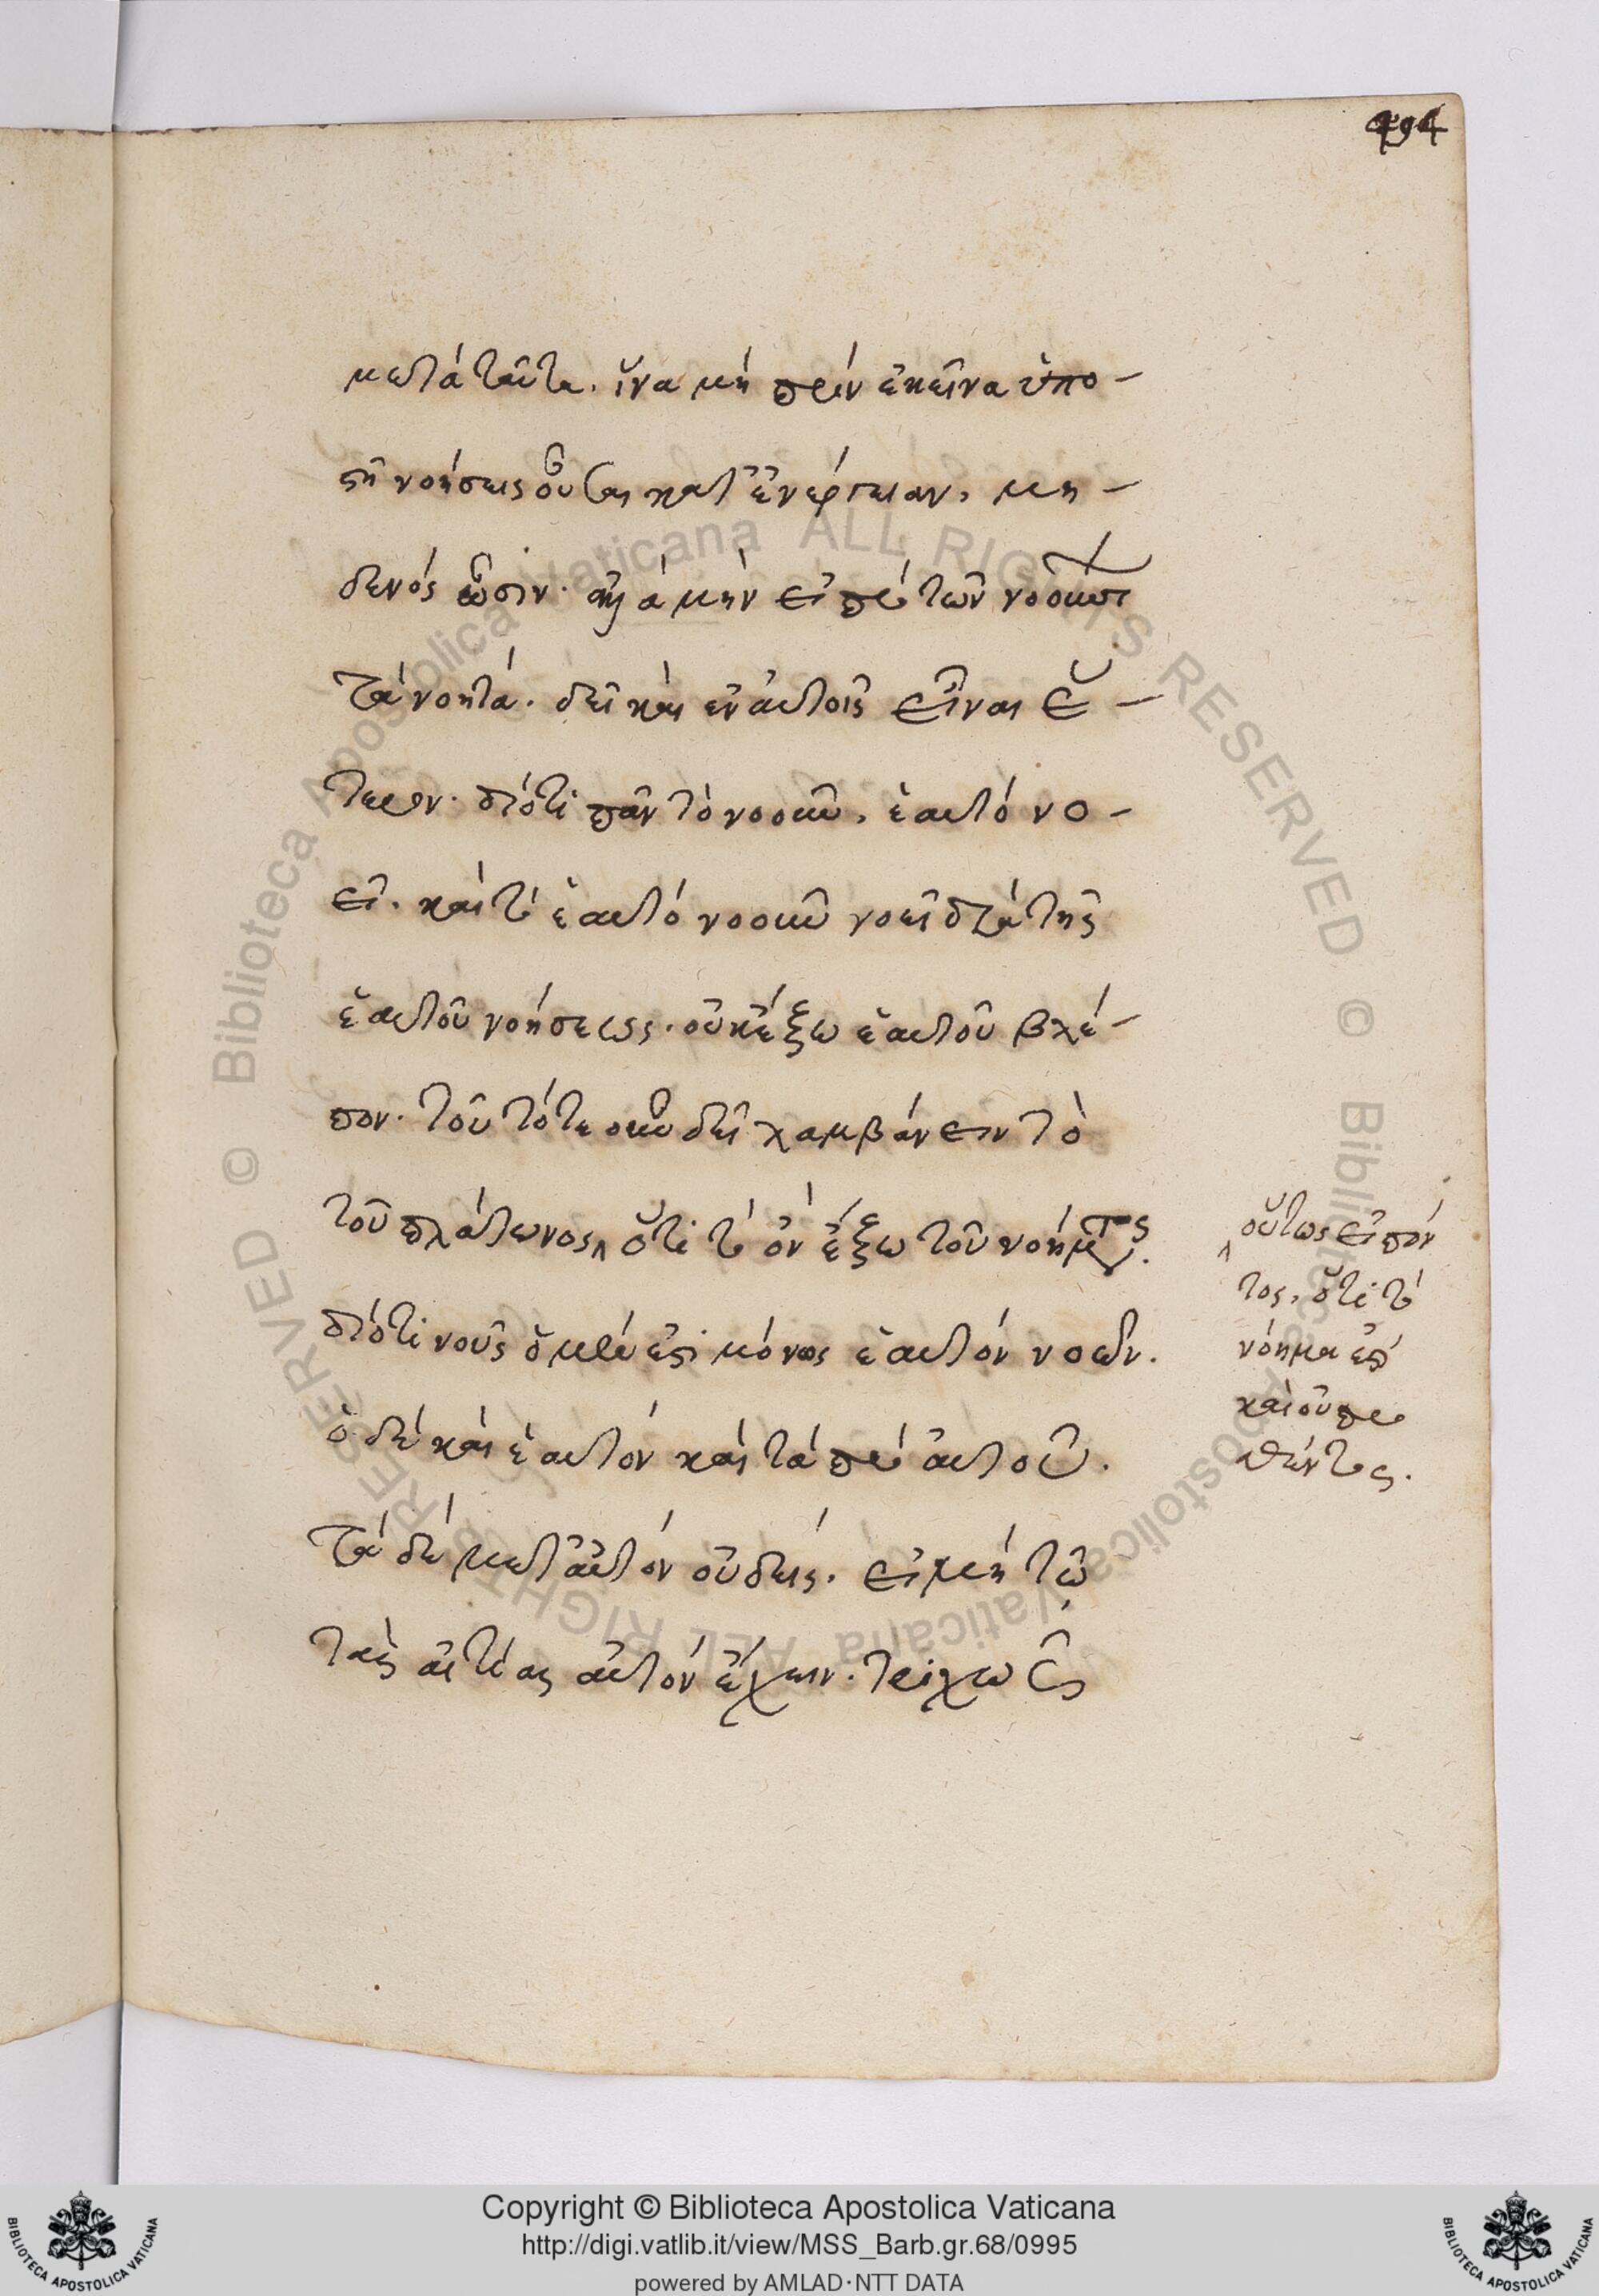 494
μετὰ ταῦτα. ἵνα μὴ πρὶν ἐκεῖνα ὑπο-
στῆ νοήσεις οὖσαι κατ' ἐνέργειαν, μη-
δενός ὦσιν. ἀλλὰ μὴν εἰ πρὸ τῶν νοούντων
τὰ νοητά. δεῖ καὶ ἐν αὐτοῖς εἶναι ἕ-
τερον. διότι πᾶν τὸ νοοῦν, ἑαυτὸ νο-
εῖ. καὶ τὸ ἑαυτὸ νοοῦν νοεῖ διὰ τῆς
ἑαυτοῦ νοήσεως. οὐκ ἔξω ἑαυτοῦ βλέ-
πον. τοῦτό τε οὖν δεῖ λαμβάνειν τὸ
τοῦ πλάτωνος ὅτι τὸ ὂν ἔξω τοῦ νοήματος.
διότι νοῦς ὁ μέν ἐστι μόνως ἑαυτὸν νοῶν.
ὁ δὲ καὶ ἑαυτὸν καὶ τὰ πρὸ αὐτοῦ.
τὰ δὲ μετ' αὐτὸν οὐδείς. εἰ μὴ τῶ
τὰς αἰτίας αὐτὸν ἔχειν. τριχῶς
οὕτως εἰπόν
τος, ὅτι τὸ
νόημα
καὶ οὐ
Copyright © Biblioteca Apostolica Vaticana
http://digi.vatlib.it/view/MSS_Barb.gr.68/0995
powered by AMLAD·NTT DATA
BIBLIOTECA APOSTOLICA VATICANA
BIBLIOTECA APOSTOLICA VATICANA
© Biblioteca Apostolica Vaticana ALL RIGHTS RESERVED
© Biblioteca Apostolica Vaticana ALL RIGHTS RESERVED